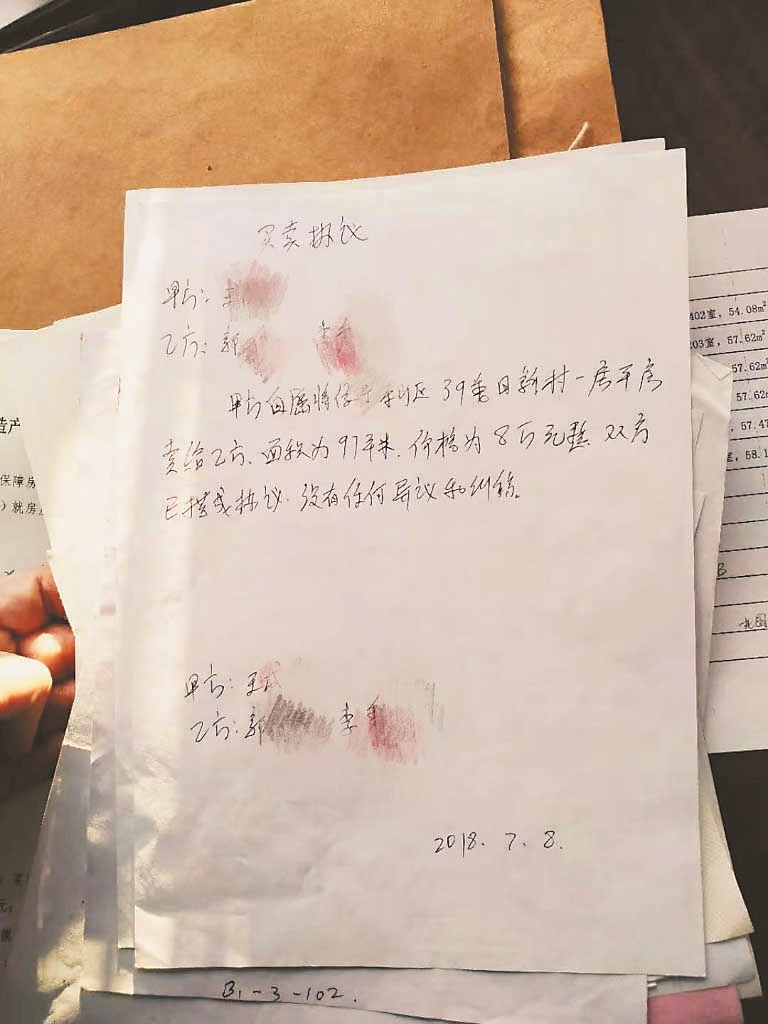 买卖协议
甲方：王
乙方：郭 李
甲方自愿将位于 区39委日新村一居平房
卖给乙方、面积为97平米、价格为8万元整 双方
已 成协议、没有任何异议和纠纷。
甲方：王
乙方：郭 李
2018.7.8.
B1-3-102.
402室，54.08m²
03室，57.62m²
57.62m²
57.62
57.47
室，58.1
B
产
保障房
）就房